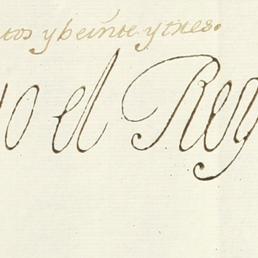 tos y beinte y tres.
o el Rey